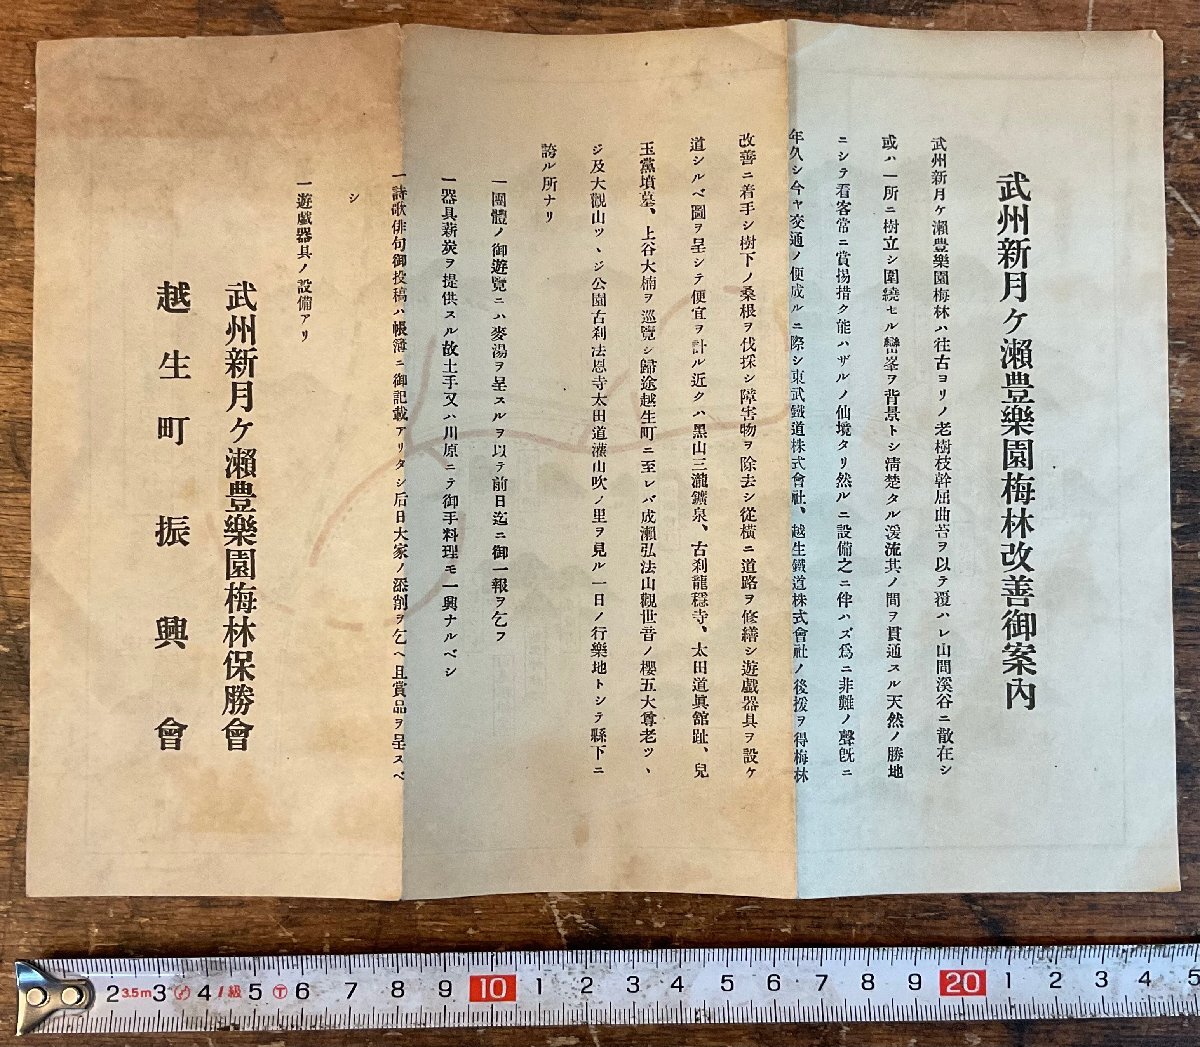 武州新月ケ瀬豊樂園梅林改善御案內
武州新月ケ瀬豊樂園梅林ハ往古ヨリノ老樹枝幹屈曲苔ヲ以テ覆ハレ山間溪谷ニ散在シ
或ハ一所ニ樹立シ圍繞セル巒峯ヲ背景トシ清楚タル溪流其ノ間ヲ貫通スル天然ノ勝地
ニシテ看客常ニ賞揚措ク能ハザルノ仙境タリ然ルニ設備之ニ伴ハズ爲ニ非難ノ聲旣ニ
年久シ今ヤ交通ノ便成ルニ際シ東武鐵道株式會社、越生鐵道株式會社ノ後援ヲ得梅林
改善ニ着手シ樹下ノ桑根ヲ伐採シ障害物ヲ除去シ從橫ニ道路ヲ修繕シ遊戲器具ヲ設ケ
道シルベ圖ヲ呈シテ便宜ヲ計ル近クハ黑山三瀧鑛泉、古刹龍穩寺、太田道眞館趾、兒
玉黨墳墓、上谷大楠ヲ巡覽シ歸途越生町ニ至レバ成瀨弘法山觀世音ノ櫻五大尊老ツヽ
ジ及大觀山ツヽジ公園古刹法恩寺太田道灌山吹ノ里ヲ見ル一日ノ行樂地トシテ縣下ニ
誇ル所ナリ
一團體ノ御遊覽ニハ麥湯ヲ呈スルヲ以テ前日迄ニ御一報ヲ乞フ
一器具薪炭ヲ提供スル故土手又ハ川原ニテ御手料理モ一興ナルベシ
一詩歌俳句御投稿ハ帳簿ニ御記載アリタシ后日大家ノ添削ヲ乞ヘ且賞品ヲ呈スベ
シ
一遊戲器具ノ設備アリ
武州新月ケ瀨豊樂園梅林保勝會
越生町振興會
2 3.5m 3 4 1級 5 6 7 8 9 10 1 2 3 4 5 6 7 8 9 20 1 2 3 4 5